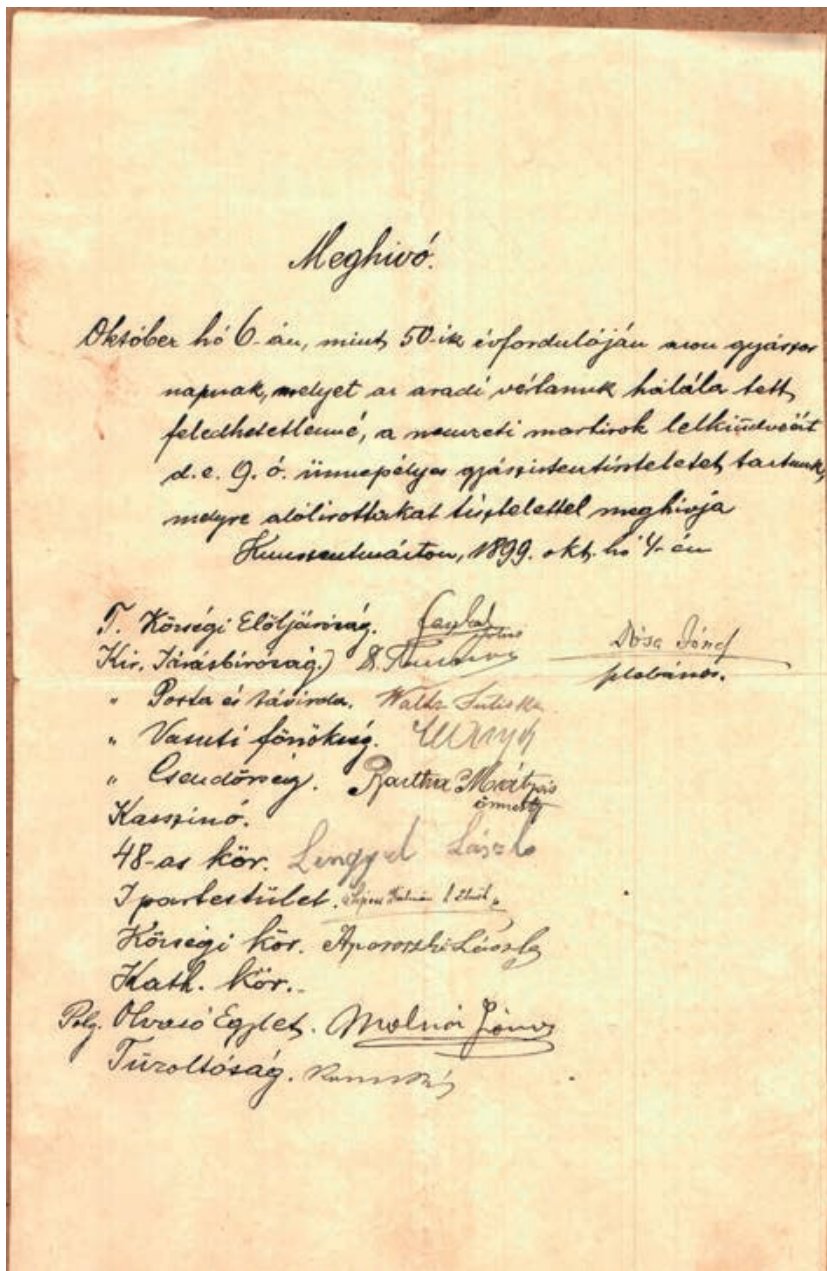 Meghivó.
Október hó 6-án, mint 50-ik évfordulóján azon gyászos
napnak, melyet az aradi vértanuk halála tett
feledhetetlenné, a nemzeti martirok lelkiüdvéért
d. e. 9. ó. ünnepélyes gyászistentiszteletet tartunk,
melyre alólirottakat tisztelettel meghivja
Kunszentmárton, 1899. okt. hó 4-én
T. Községi Elöljáróság.
Dósa József
plebános.
Kir. Járásbiróság.) Dr.
" Posta és távirda. Juliska
" Vasuti főnökség.
" Csendőrség. Bartha Mátyás
őrmester
Kaszinó.
48-as kör. Lengyel László
Ipartestület. Kálmán
Községi kör. László
Kath. kör.
Polg. Olvasó Egylet. Molnár János
Tűzoltóság.